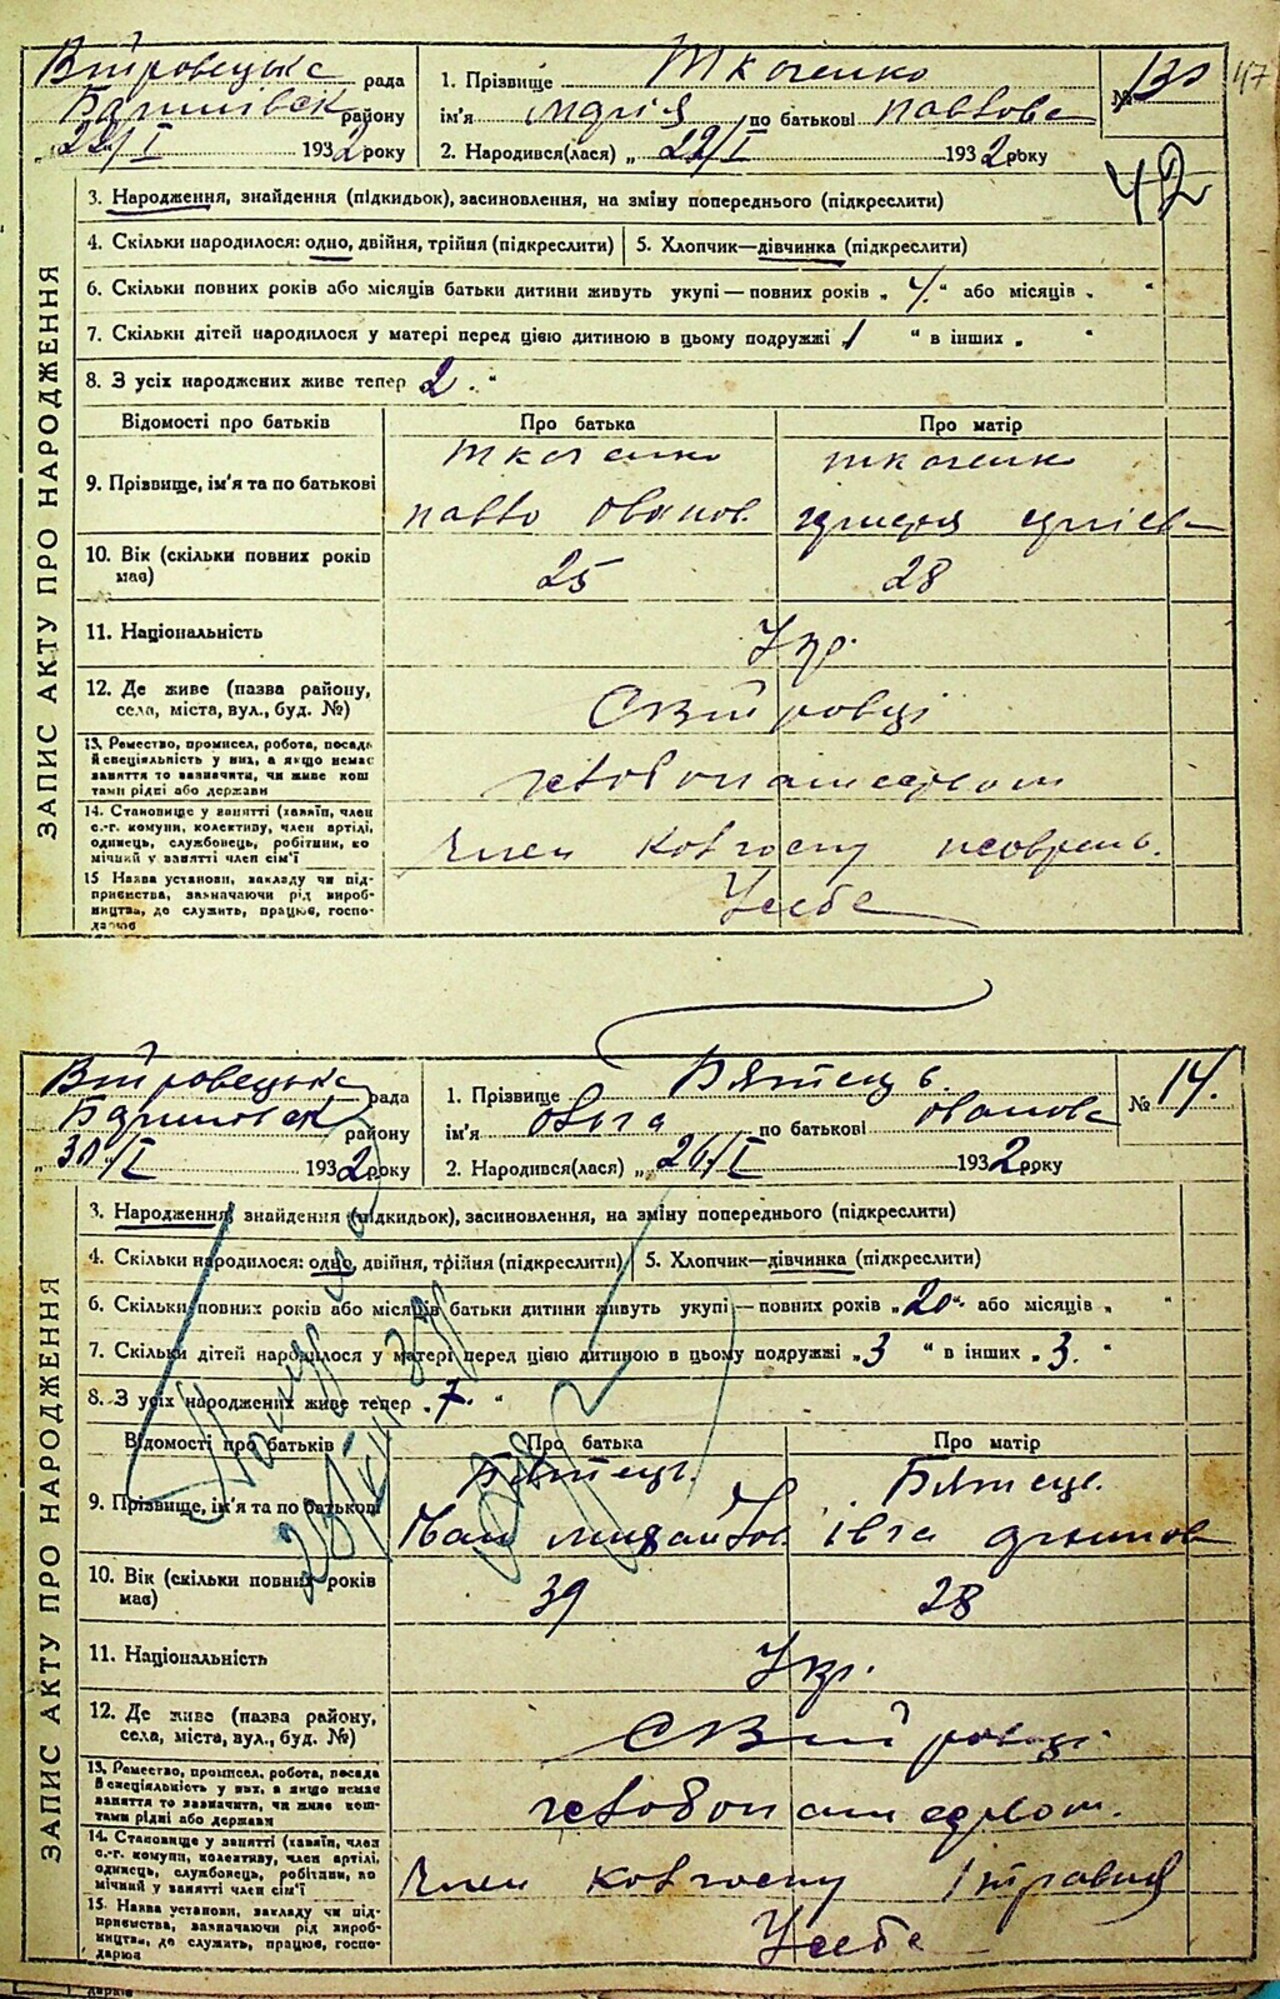 Вітровецька рада
Баришівськ району
„22/I 1932 року
1. Прізвище Ткаченко
ім'я Марія по батькові Павлова
2. Народився(лася) „22/I 1932 року
№ 13
47
42
ЗАПИС АКТУ ПРО НАРОДЖЕННЯ
3. Народження, знайдення (підкидьок), засиновлення, на зміну попереднього (підкреслити)
4. Скільки народилося: одно, двійня, трійня (підкреслити) 5. Хлопчик—дівчинка (підкреслити)
6. Скільки повних років або місяців батьки дитини живуть укупі — повних років „4.“ або місяців „ “
7. Скільки дітей народилося у матері перед цією дитиною в цьому подружжі „1 “ в інших „ “
8. З усіх народжених живе тепер „2. “
Відомості про батьків Про батька Про матір
Ткаченко Ткаченк
9. Прізвище, ім'я та по батькові
Павло Іванов.
10. Вік (скільки повних років має) 25 28
11. Національність Укр.
12. Де живе (назва району, села, міста, вул., буд. №)
С Вітровці
13. Ремество, промисел, робота, посада
й спеціяльність у них, а якщо немає
заняття то зазначити, чи живе кош
тами рідні або держави
хлібопашеством
14. Становище у занятті (хазяїн, член
с.-г. комуни, колективу, член артілі,
одинець, службовець, робітник, по
мічний у занятті член сім'ї
Член колгоспу
15 Назва установи, закладу чи під-
приємства, зазначаючи рід вироб-
ництва, де служить, працює, госпо-
дарює
У себе
Вітровецька рада
Баришовськ району
„30“/I 1932 року
1. Прізвище Бятець
ім'я Ольга по батькові Іванова
2. Народився(лася) „26/I 1932 року
№ 14.
ЗАПИС АКТУ ПРО НАРОДЖЕННЯ
3. Народження, знайдення (підкидьок), засиновлення, на зміну попереднього (підкреслити)
4. Скільки народилося: одно, двійня, трійня (підкреслити) 5. Хлопчик—дівчинка (підкреслити)
6. Скільки повних років або місяців батьки дитини живуть укупі — повних років „20“ або місяців „ “
7. Скільки дітей народилося у матері перед цією дитиною в цьому подружжі „3 “ в інших „3. “
8. З усіх народжених живе тепер „7. “
Відомості про батьків Про батька Про матір
Бятець. Бятець.
9. Прізвище, ім'я та по батькові
Іван Михайлов. Івга
10. Вік (скільки повних років має) 39 28
11. Національність Укр.
12. Де живе (назва району, села, міста, вул., буд. №)
С Вітровці
13. Ремество, промисел, робота, посада
й спеціяльність у них, а якщо немає
заняття то зазначити, чи живе кош-
тами рідні або держави
хлібопашеством.
14. Становище у занятті (хазяїн, член
с.-г. комуни, колективу, член артілі,
одинець, службовець, робітник, по
мічний у занятті член сім'ї
Член колгоспу 1 травня
15. Назва установи, закладу чи під-
приємства, зазначаючи рід вироб-
ництва, де служить, працює, госпо-
дарює
У себе
дарює